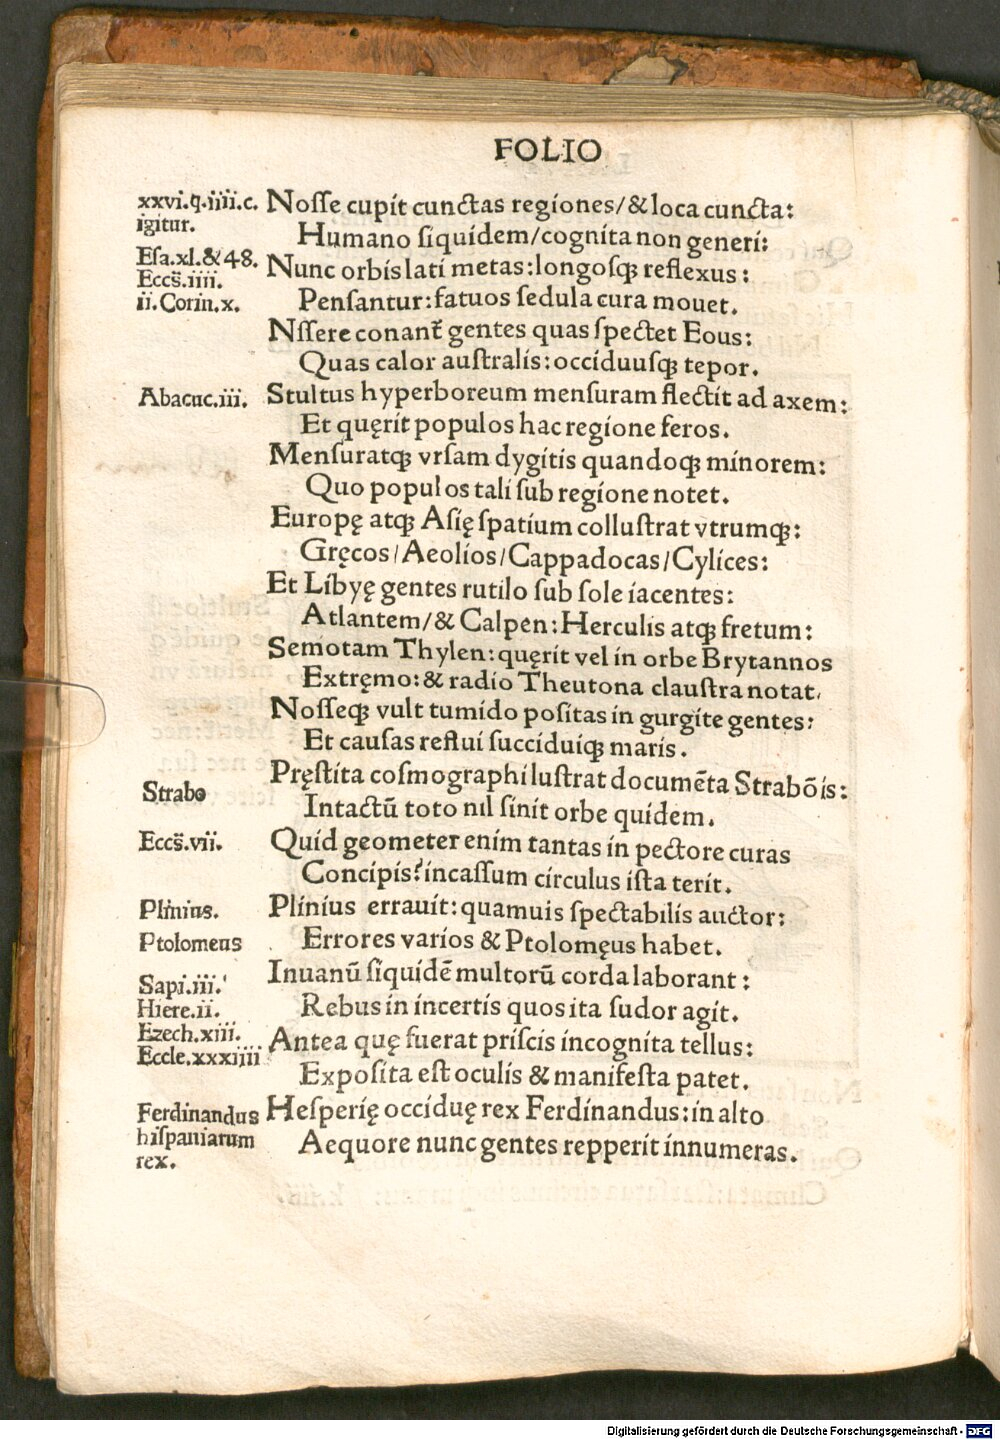 FOLIO
xxvi.q.iiii.c.
igitur.
Noſſe cupit cunctas regiones/& loca cuncta:
Humano ſiquidem/cognita non generi:
Eſa.xl.&48.
Eccs̄.iiii.
ii.Corin.x.
Nunc orbis lati metas:longoſqꝫ reflexus:
Penſantur:fatuos ſedula cura mouet.
Nſſere conant̄ gentes quas ſpectet Eous:
Quas calor auſtralis:occiduuſqꝫ tepor.
Abacuc.iii.
Stultus hyperboreum menſuram flectit ad axem:
Et quęrit populos hac regione feros.
Menſuratqꝫ vrſam dygitis quandoqꝫ minorem:
Quo populos tali ſub regione notet.
Europę atqꝫ Aſię ſpatium colluſtrat vtrumqꝫ:
Gręcos/Aeolios/Cappadocas/Cylices:
Et Libyę gentes rutilo ſub ſole iacentes:
Atlantem/& Calpen:Herculis atqꝫ fretum:
Semotam Thylen:quęrit vel in orbe Brytannos
Extręmo:& radio Theutona clauſtra notat.
Noſſeqꝫ vult tumido poſitas in gurgite gentes:
Et cauſas reflui ſucciduiqꝫ maris.
Pręſtita coſmographi luſtrat documēta Strabōis:
Strabo
Intactū toto nil ſinit orbe quidem.
Eccs̄.vii.
Quid geometer enim tantas in pectore curas
Concipis?incaſſum circulus iſta terit.
Plinius.
Plinius errauit:quamuis ſpectabilis auctor:
Ptolomeus
Errores varios & Ptolomęus habet.
Sapi.iii.
Hiere.ii.
Ezech.xiii.
Eccle.xxxiiii
Inuanū ſiquidē multorū corda laborant:
Rebus in incertis quos ita ſudor agit.
Antea quę fuerat priſcis incognita tellus:
Expoſita eſt oculis & manifeſta patet.
Ferdinandus
hiſpaniarum
rex.
Heſperię occiduę rex Ferdinandus:in alto
Aequore nunc gentes repperit innumeras.
Digitalisierung gefördert durch die Deutsche Forschungsgemeinschaft - DFG